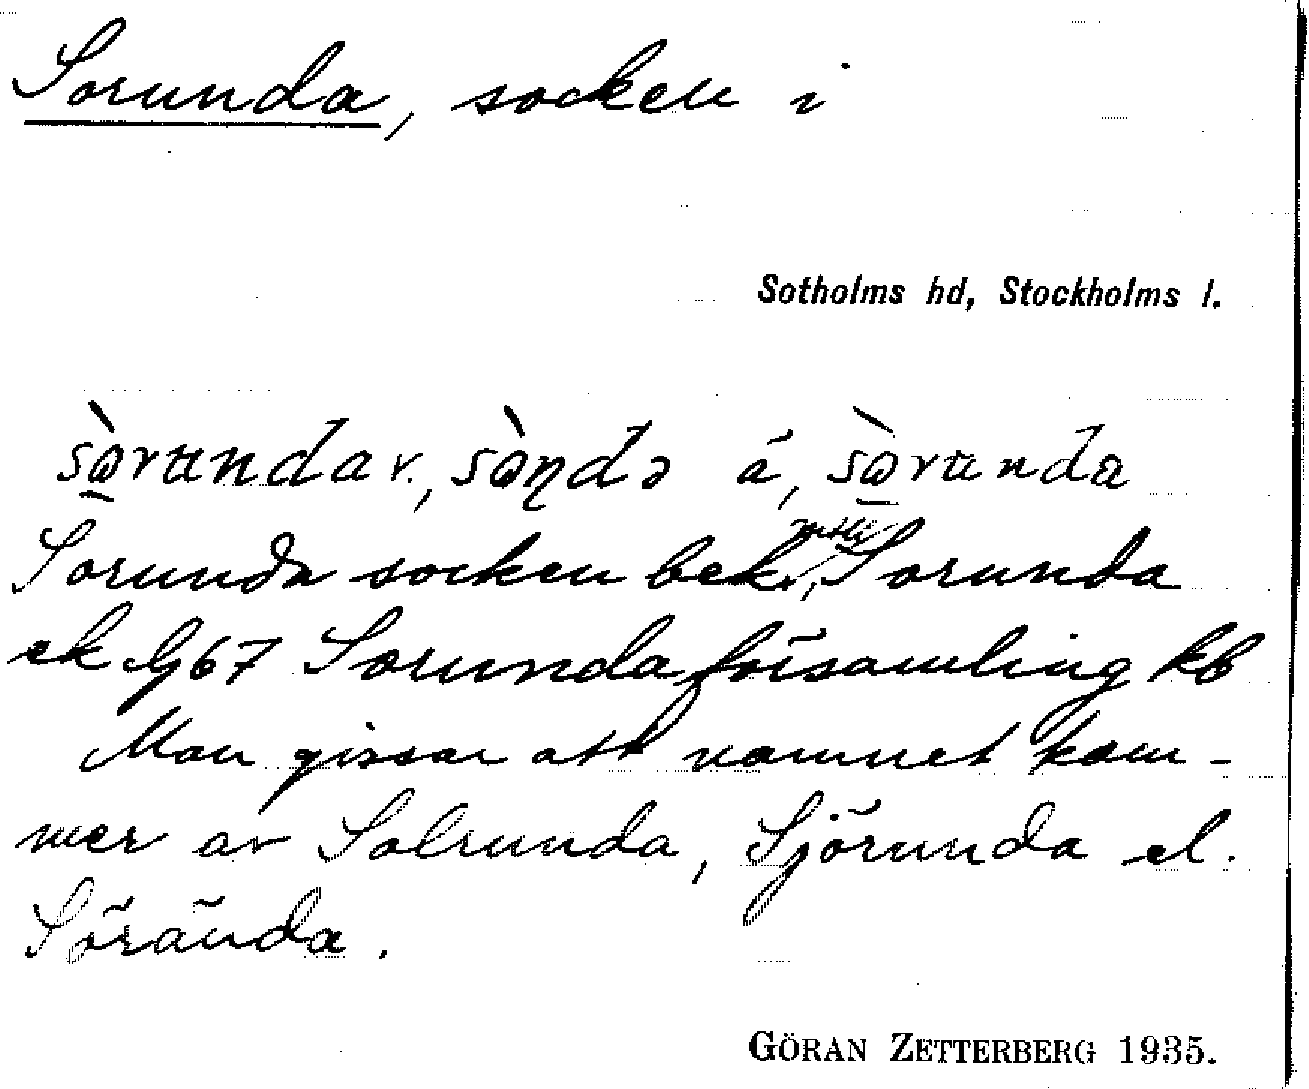 Sorunda, socken i
Sotholms hd, Stockholms l.
sòrunda v., sòṇdə á, sòrunda
Sorunda socken bek., Sorunda
ek G67 Sorunda församling kb
Man gissar att namnet kom-
mer av Solrunda, Sjörunda el.
Sörända.
GÖRAN ZETTERBERG 1935.